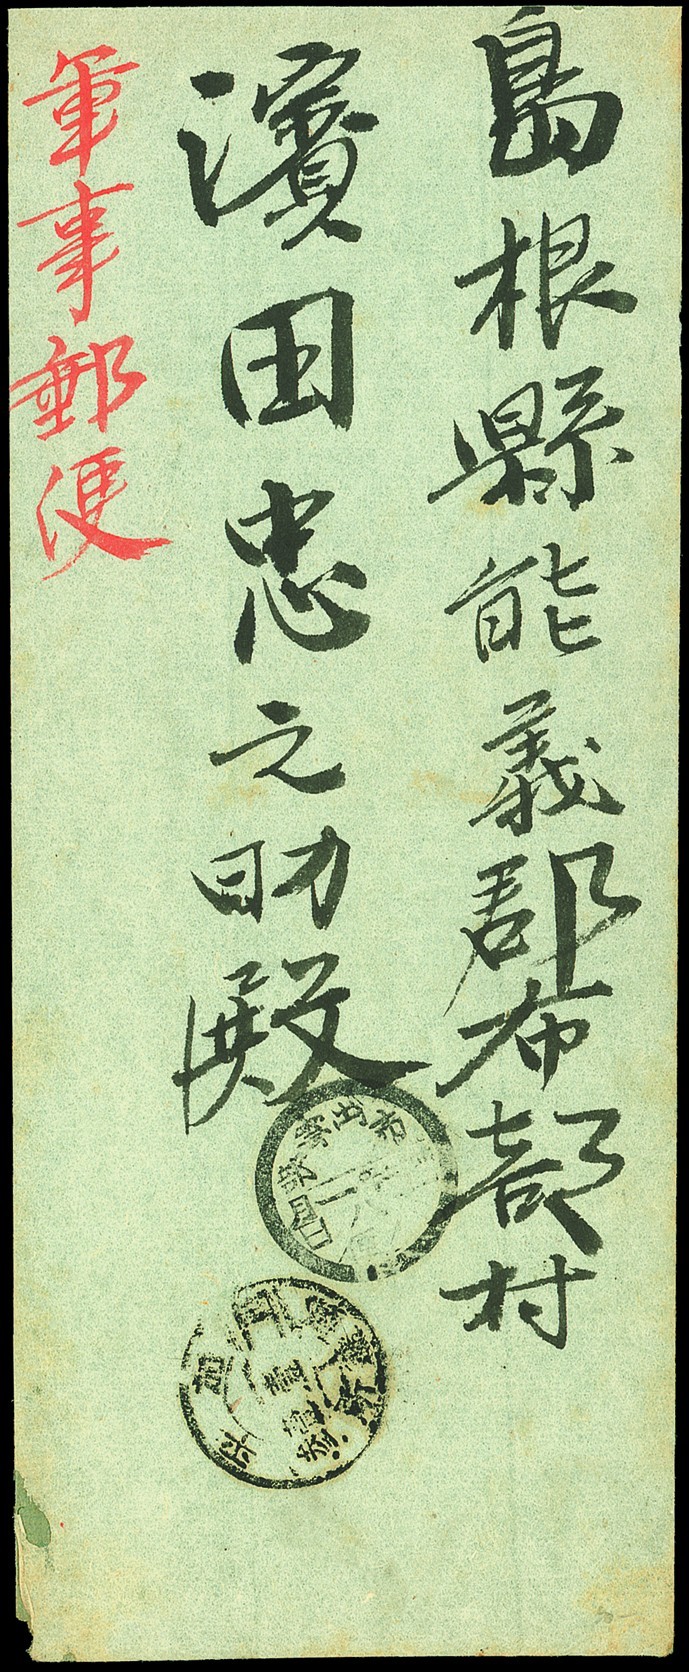 島根縣能義郡布部村
濱田忠之助殿
軍事郵便